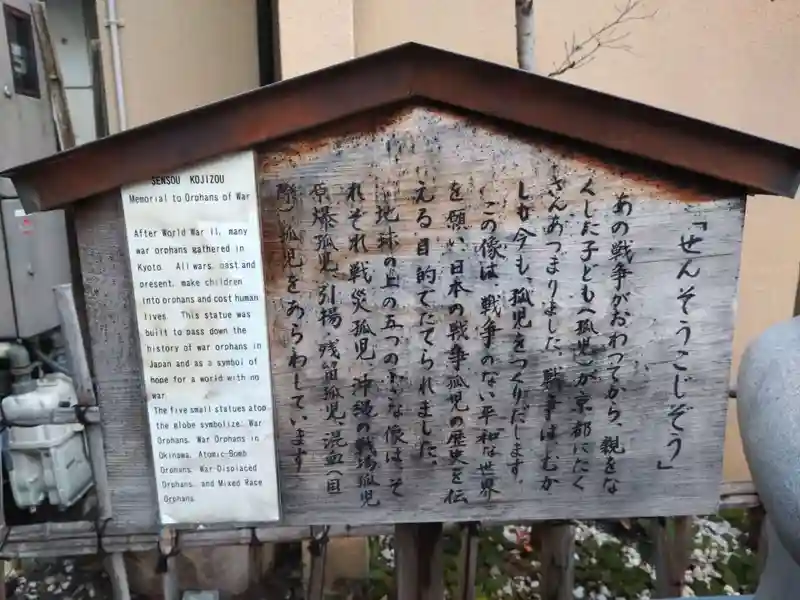 「せんそうこじぞう」
あの戦争がおわってから、親をな
くした子ども(孤児)が京都にたく
さんあつまりました。戦争は、むか
しも今も、孤児をつくりだします。
この像は、戦争のない平和な世界
を願い、日本の戦争孤児の歴史を伝
える目的でたてられました。
地球の上の五つの小さな像は、そ
れぞれ戦災孤児、沖縄の戦場孤児
原爆孤児、引揚、残留孤児、混血(国
際)孤児をあらわしています
SENSOU KOJIZOU
Memorial to Orphans of War
After World War II, many
war orphans gathered in
Kyoto. All wars, past and
present, make children
into orphans and cost human
lives. This statue was
built to pass down the
history of war orphans in
Japan and as a symbol of
hope for a world with no
war.
The five small statues atop
the globe symbolize: War
Orphans, War Orphans in
Okinawa, Atomic-Bomb
Orphans, War Displaced
Orphans, and Mixed Race
Orphans.